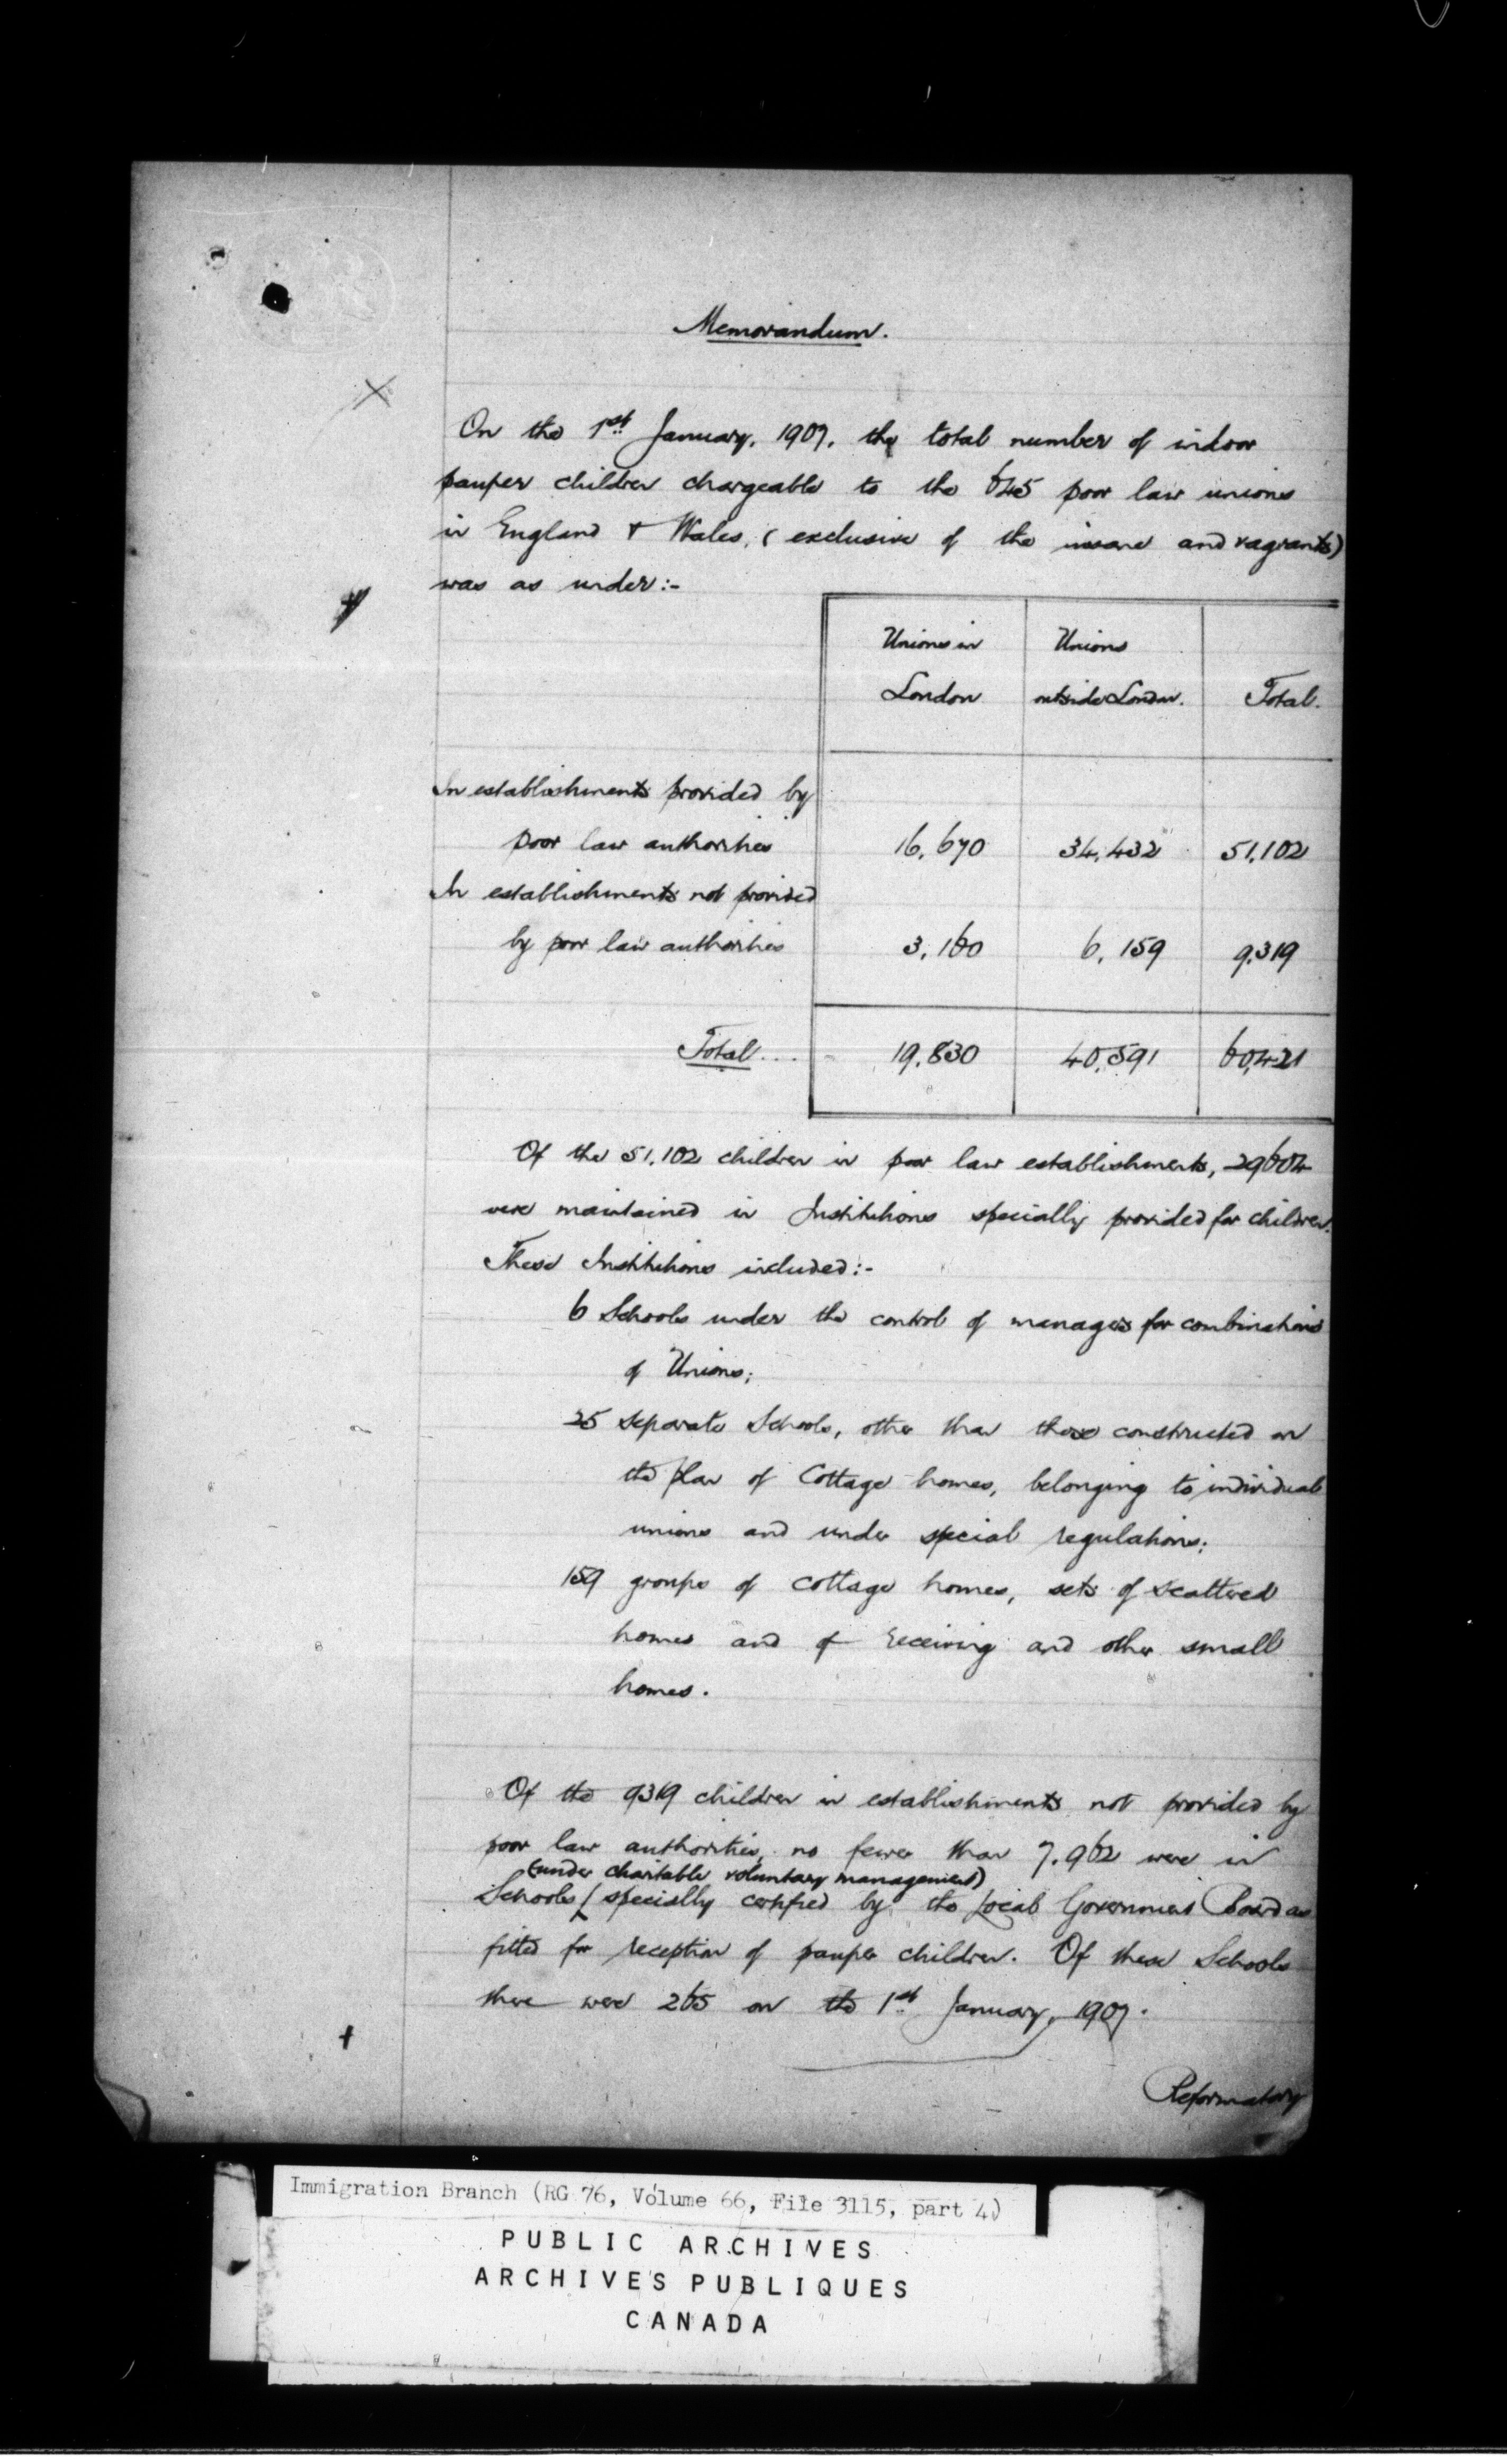 Memorandum.
On the 1st January, 1907, the total number of indoor
pauper children chargeable to the 645 poor law unions
in England & Wales, (exclusive of the insane and vagrants)
was as under:-
Unions in London
Unions outside London.
Total.
In establishments provided by
poor law authorities 16,670 34,432 51,102
In establishments not provided
by poor law authorities 3,160 6,159 9,319
Total... 19,830 40,591 60,421
Of the 51,102 children in poor law establishments, 29604
were maintained in Institutions specially provided for children.
These Institutions included:-
6 Schools under the control of managers for combinations
of Unions;
25 separate Schools, other than those constructed on
the plan of Cottage homes, belonging to individual
unions and under special regulations;
159 groups of cottage homes, sets of scattered
homes and of receiving and other small
homes.
Of the 9319 children in establishments not provided by
poor law authorities, no fewer than 7,962 were in
(under charitable voluntary management)
Schools specially certified by the Local Government Board as
fitted for reception of pauper children. Of these Schools
there were 265 on the 1st January, 1907.
Reformatory
Immigration Branch (RG 76, Volume 66, File 3115, part 4)
PUBLIC ARCHIVES
ARCHIVES PUBLIQUES
CANADA